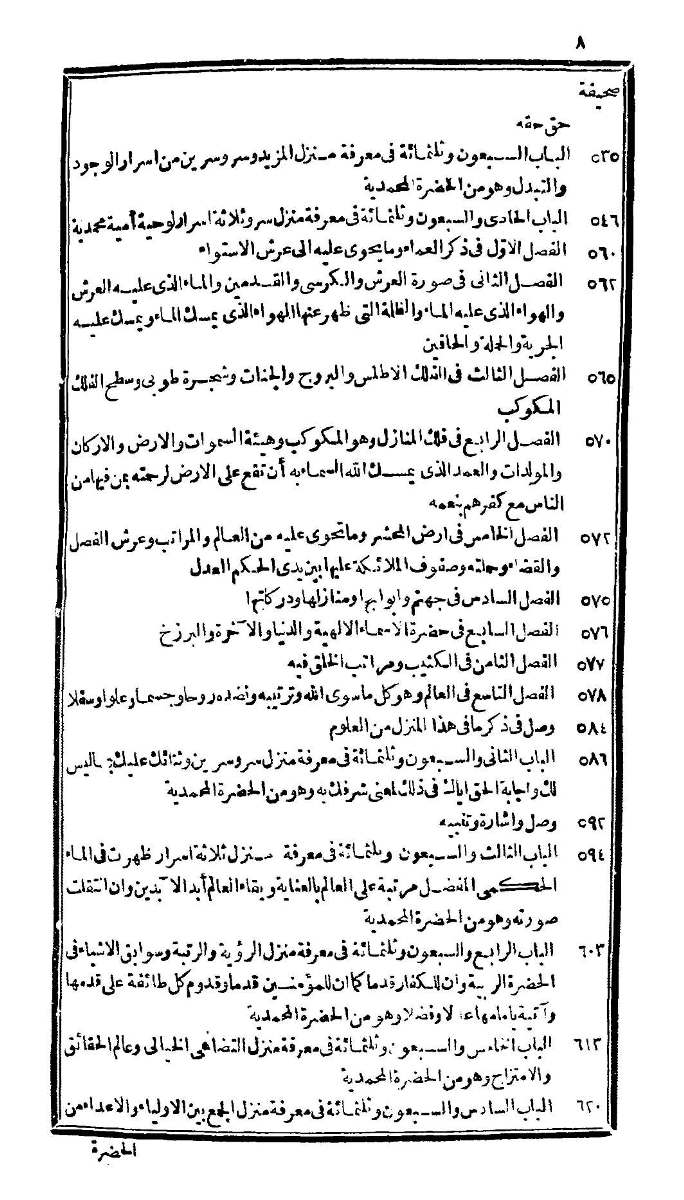 ٨
صحيفة
حق حقه
٥٣٥ الباب السبعون وثلثمائة في معرفة منزل المزيد وسر وسرين من اسرار الوجود
والتبدل وهو من الحضرة المحمدية
٥٤٦ الباب الحادى والسبعون وثلثمائة في معرفة منزل سر وثلاثة اسرار لوحية أمية محمدية
٥٦٠ الفصل الاوّل فى ذكر العماء وما يحوى عليه الى عرش الاستواء
٥٦٢ الفصل الثانى فى صورة العرش والكرسى والقدمين والماء الذى عليه العرش
والهواء الذى عليه الماء والظلة التى ظهر عنها الهواء الذى يمسك الماء ويمسك عليه
الجرية والحملة والحافين
٥٦٥ الفصل الثالث فى الفلك الاطلس والبروج والجنات وشجرة طوبى وسطح الفلك
المكوكب
٥٧٠ الفصل الرابع فى فلك المنازل وهو المكوكب وهيئة السموات والارض والاركان
والمولدات والعمد الذى يمسك الله السماء به أن تقع على الارض لرحمته بمن فيها من
الناس مع كفرهم بنعمه
٥٧٢ الفصل الخامس فى ارض المحشر وما تحوى عليه من العالم والمراتب وعرش الفصل
والقضاء وحملته وصفوف الملائكة عليها بين يدى الحكم العدل
٥٧٥ الفصل السادس فى جهنم وابوابها ومنازلها ودركاتها
٥٧٦ الفصل السابع فى حضرة الاسماء الالهية والدنيا والآخرة والبرزخ
٥٧٧ الفصل الثامن فى الكثيب ومراتب الخلق فيه
٥٧٨ الفصل التاسع فى العالم وهو كل ما سوى الله وترتيبه ونضده روحا وجسما وعلوا وسفلا
٥٨٤ وصل فى ذكر ما فى هذا المنزل من العلوم
٥٨٦ الباب الثانى والسبعون وثلثمائة فى معرفة منزل سر وسرين وثنائك عليك بما ليس
لك واجابة الحق اياك فى ذلك لمعنى شرفك به وهو من الحضرة المحمدية
٥٩٢ وصل واشارة وتنبيه
٥٩٤ الباب الثالث والسبعون وثلثمائة فى معرفة منزل ثلاثة اسرار ظهرت فى الماء
الحكمى المفضل مرتبة على العالم بالعناية وبقاء العالم أبد الآبدين وان انتقلت
صورته وهو من الحضرة المحمدية
٦٠٣ الباب الرابع والسبعون وثلثمائة فى معرفة منزل الرؤية والرتبة وسوابق الاشياء فى
الحضرة الربية وان للكفار قدما كما ان للمؤمنين قدما وقدوم كل طائفة على قدمها
وآتية بامامها عدلا وفضلا وهو من الحضرة المحمدية
٦١٣ الباب الخامس والسبعون وثلثمائة فى معرفة منزل التضاهى الخيالى وعالم الحقائق
والامتزاج وهو من الحضرة المحمدية
٦٢٠ الباب السادس والسبعون وثلثمائة فى معرفة منزل الجمع بين الاولياء والاعداء من
الحضرة